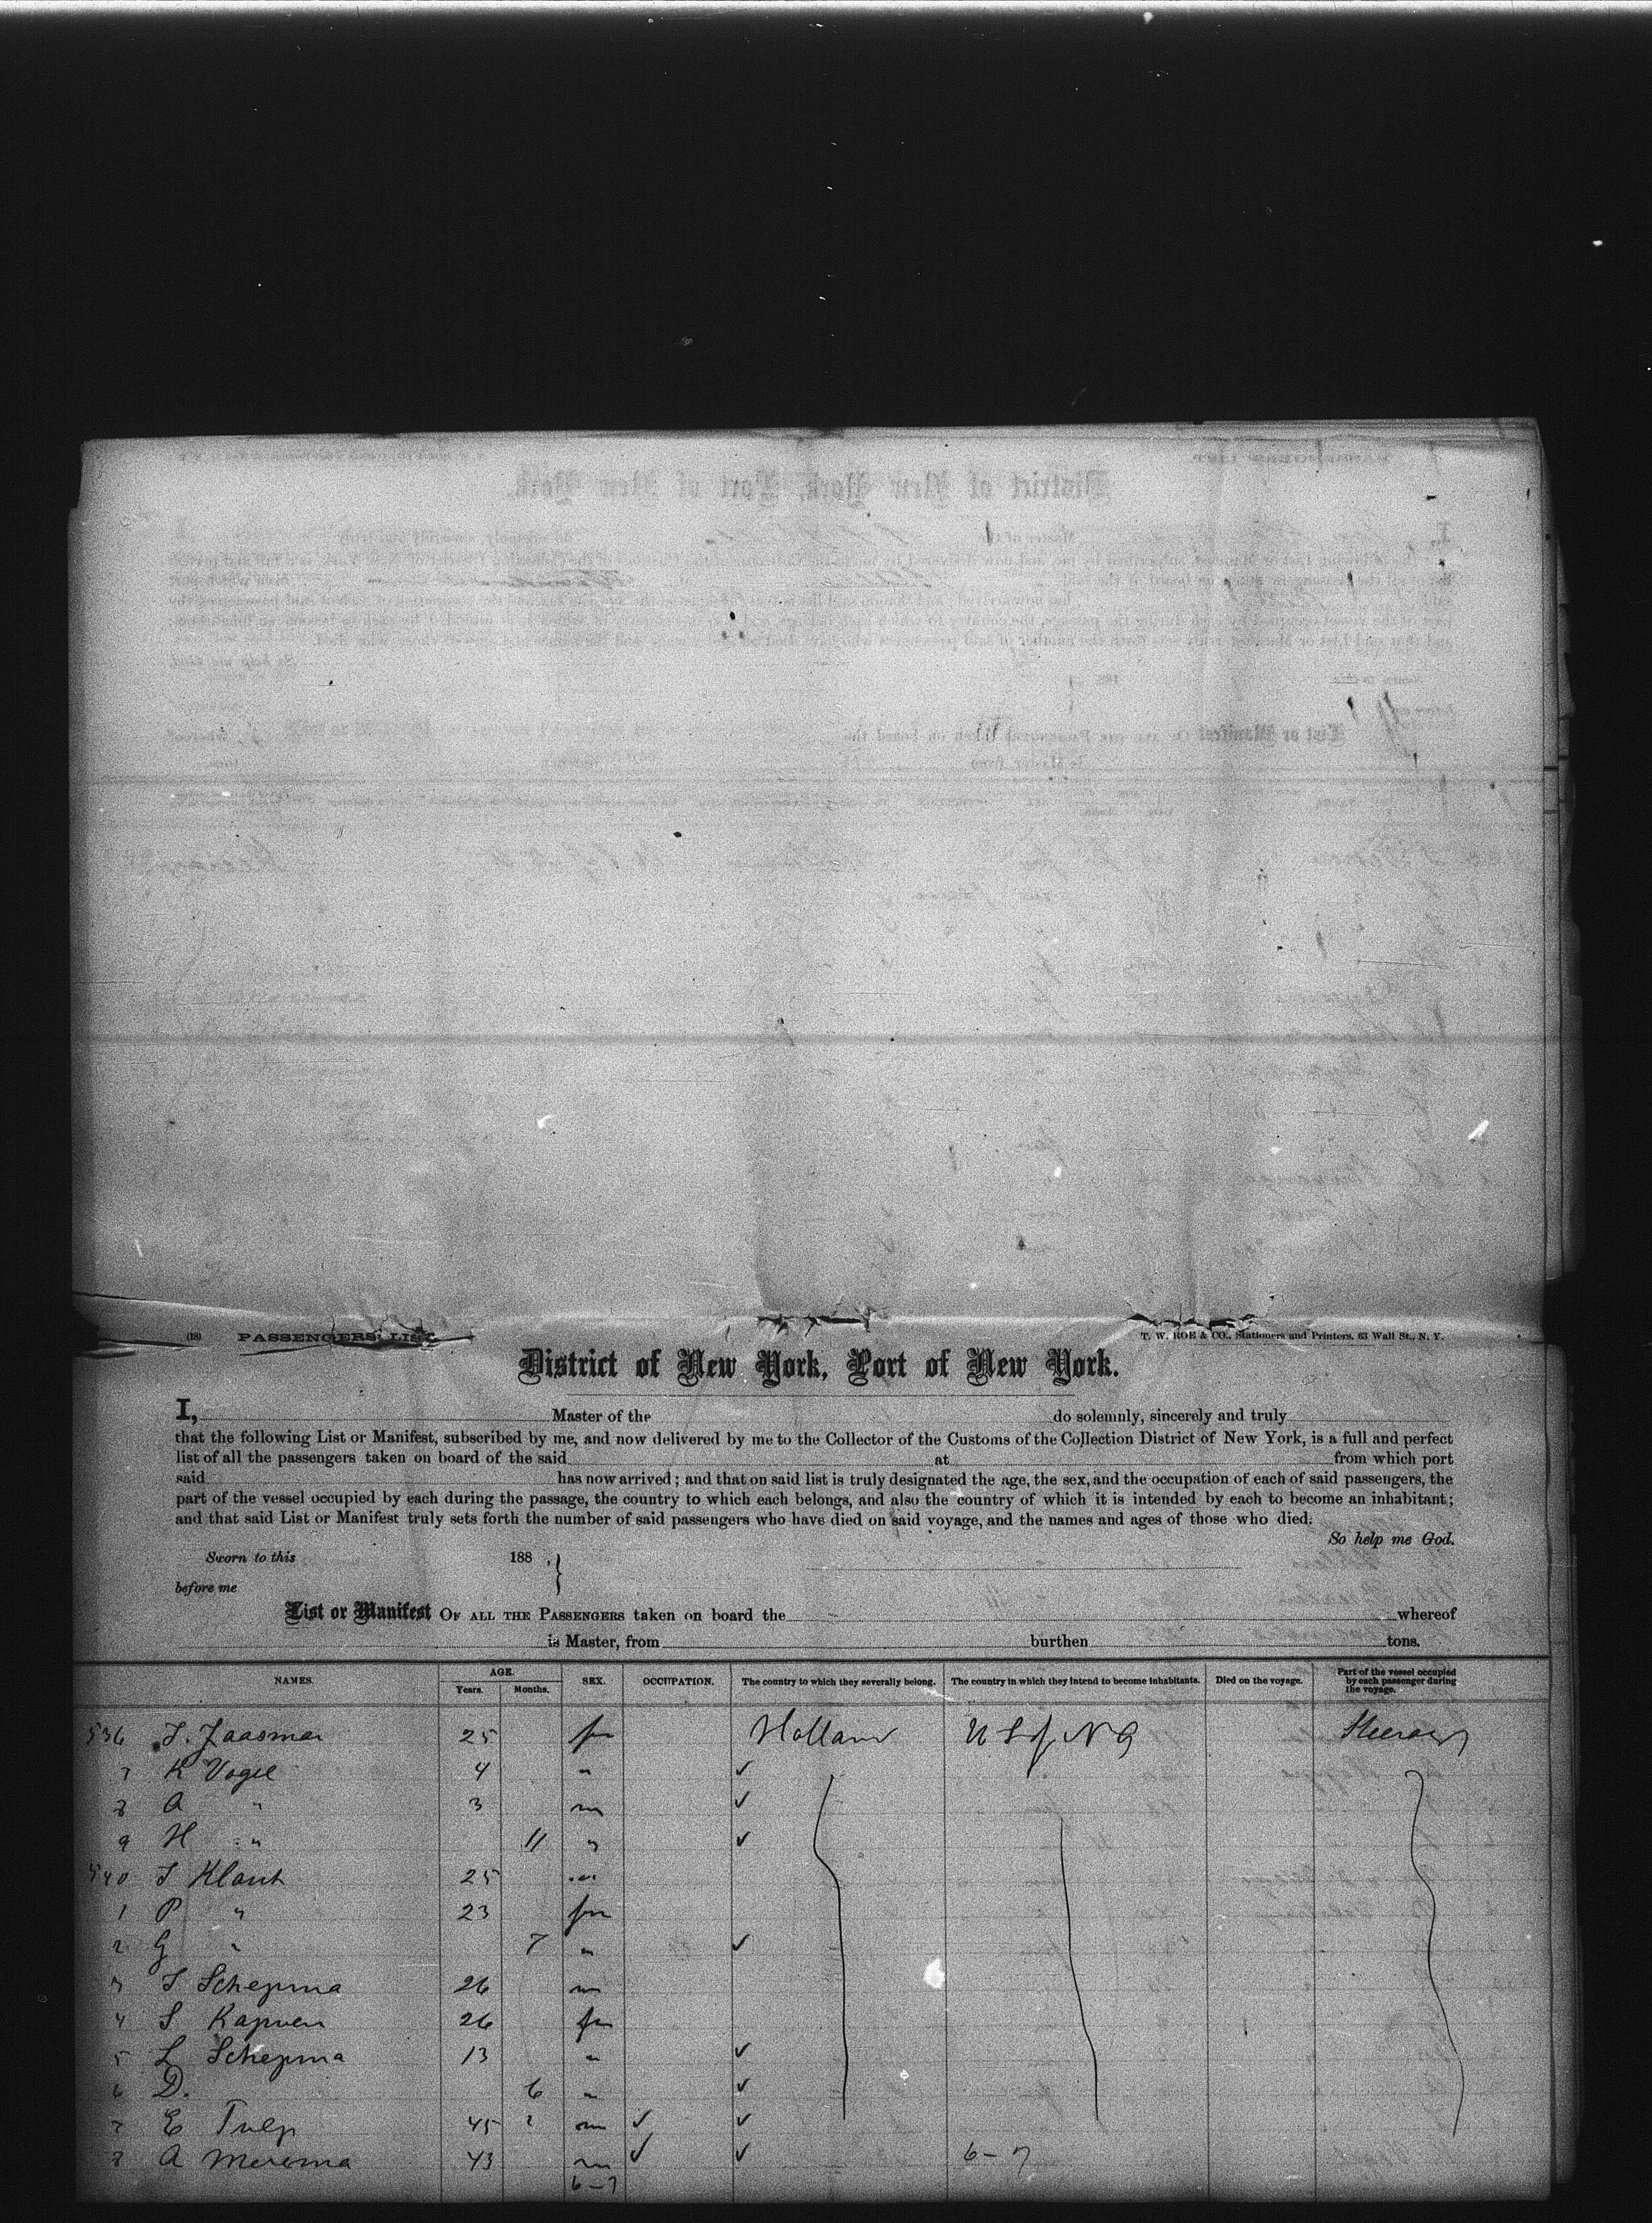 (18) PASSENGERS' LIST. T. W. ROE & CO., Stationers and Printers, 63 Wall St., N. Y.
District of New York, Port of New York.
I, Master of the do solemnly, sincerely and truly
that the following List or Manifest, subscribed by me, and now delivered by me to the Collector of the Customs of the Collection District of New York, is a full and perfect
list of all the passengers taken on board of the said at from which port
said has now arrived; and that on said list is truly designated the age, the sex, and the occupation of each of said passengers, the
part of the vessel occupied by each during the passage, the country to which each belongs, and also the country of which it is intended by each to become an inhabitant;
and that said List or Manifest truly sets forth the number of said passengers who have died on said voyage, and the names and ages of those who died.
So help me God.
Sworn to this 188 ,
before me
List or Manifest OF ALL THE PASSENGERS taken on board the whereof
is Master, from burthen tons.
NAMES. AGE. Years. Months. SEX. OCCUPATION. The country to which they severally belong. The country in which they intend to become inhabitants. Died on the voyage. Part of the vessel occupied by each passenger during the voyage.
536 J. Jaasma 25 fm Holland U S of N A Steerage
7 K Vogel 4 "
8 A " 3 m
9 H " 11 "
540 J Klant 25 m
1 P " 23 fm
2 G " 7 "
3 J Schepma 26 m
4 S 26 fm
5 L Schepma 13 "
6 D. 6 "
7 E Tulp 45 m
8 A Merema 43 m 6-7
6-7